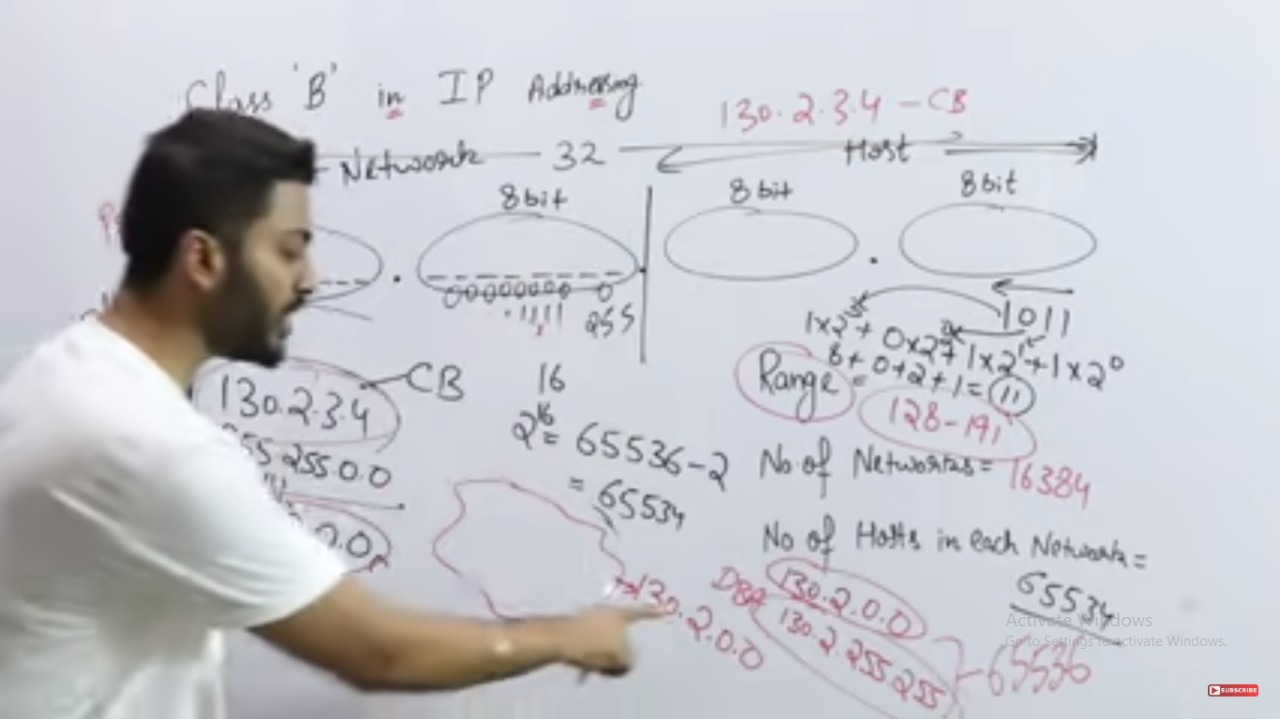 Class 'B' in IP Addressing
130.2.3.4 - CB
Network 32 Host
8bit 8bit 8bit
00000000 0
1111 255
1011
1x2³ + 0x2² + 1x2¹ + 1x2⁰
8 + 0 + 2 + 1 = 11
130.2.3.4 CB
255.0.0
0.0
16
2¹⁶ = 65536-2
= 65534
Range = 128-191
No. of Networks = 16384
No of Hosts in each Network =
65534
130.2.0.0
DBA 130.2.0.0
130.2.255.255
65536
Activate Windows
Go to Settings to activate Windows.
SUBSCRIBE